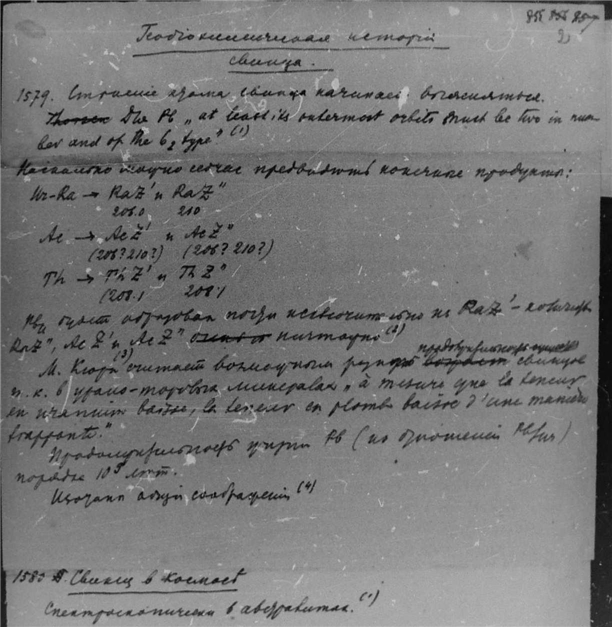 Геобиохимическая история
свинца.
1579. Строение атома свинца начинает выясняться.
Для Pb „at least its outermost orbits must be two in num-
ber and of the 6₂ type" (1)
Насколько можно сейчас предвидеть конечные продукты:
Ur-Ra → RaZ' и RaZ"
206.0 210
Ac → AcZ' и AcZ"
(206?210?) (206?210?)
Th → ThZ' и ThZ"
(208.1 208.1
будет образован почти исключительно из RaZ' - количество
RaZ", AcZ' и AcZ" ничтожно (2)
М. Кюри (3) считает возможным свинцов
т. к. в урано-торовых минералах „à mesure que la teneur
en uranium baisse, la teneur en plomb baisse d'une manière
frappante."
Продолжительность жизни Pb (из отношений Pb/ur)
порядка 10⁹ лет.
общих соображений (4)
1580 Свинец в космосе
Спектроскопически в (1)